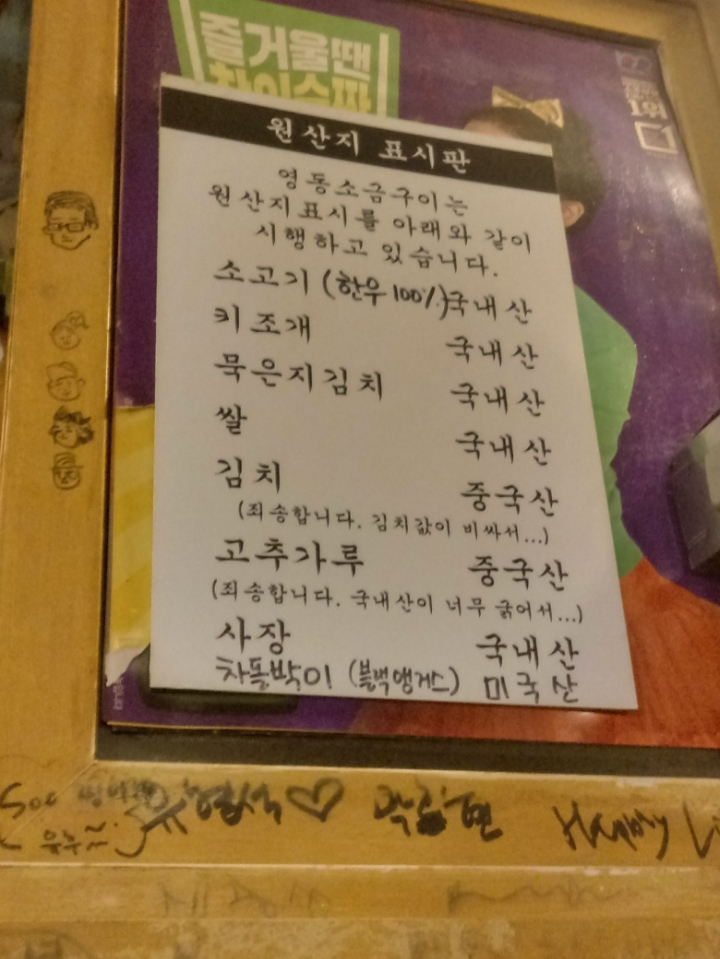 즐거울땐
참이슬과
1위
원산지 표시판
영동소금구이는
원산지표시를 아래와 같이
시행하고 있습니다.
소고기 (한우 100%) 국내산
키조개 국내산
묵은지김치 국내산
쌀 국내산
김치 중국산
(죄송합니다. 김치값이 비싸서...)
고추가루 중국산
(죄송합니다. 국내산이 너무 굵어서...)
사장 국내산
차돌박이 (블랙앵거스) 미국산